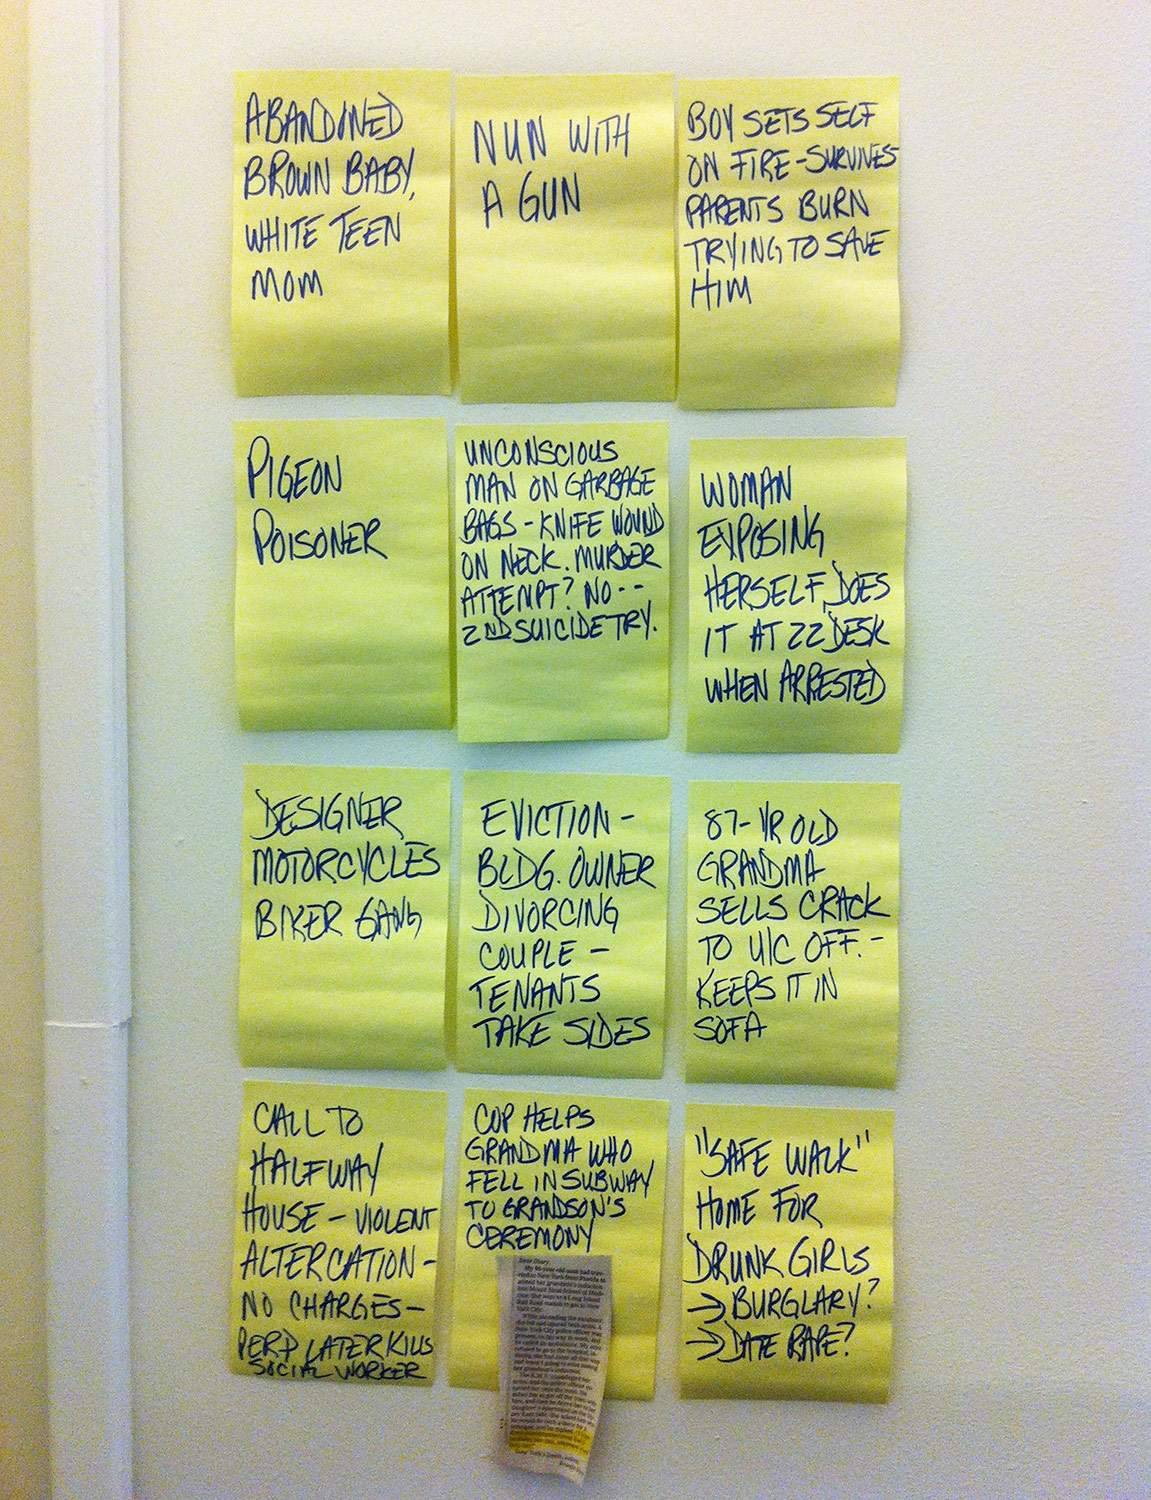 ABANDONED
BROWN BABY,
WHITE TEEN
MOM
NUN WITH
A GUN
BOY SETS SELF
ON FIRE - SURVIVES
PARENTS BURN
TRYING TO SAVE
HIM
PIGEON
POISONER
UNCONSCIOUS
MAN ON GARBAGE
BAGS - KNIFE WOUND
ON NECK. MURDER
ATTEMPT? NO --
2ND SUICIDE TRY.
WOMAN
EXPOSING
HERSELF, DOES
IT AT 22 DESK
WHEN ARRESTED
DESIGNER
MOTORCYCLES
BIKER GANG
EVICTION -
BLDG. OWNER
DIVORCING
COUPLE -
TENANTS
TAKE SIDES
87-YR OLD
GRANDMA
SELLS CRACK
TO U/C OFF. -
KEEPS IT IN
SOFA
CALL TO
HALFWAY
HOUSE - VIOLENT
ALTERCATION -
NO CHARGES -
PERP LATER KILLS
SOCIAL WORKER
COP HELPS
GRANDMA WHO
FELL IN SUBWAY
TO GRANDSON'S
CEREMONY
Dear Diary:
"SAFE WALK"
HOME FOR
DRUNK GIRLS
→ BURGLARY?
→ DATE RAPE?